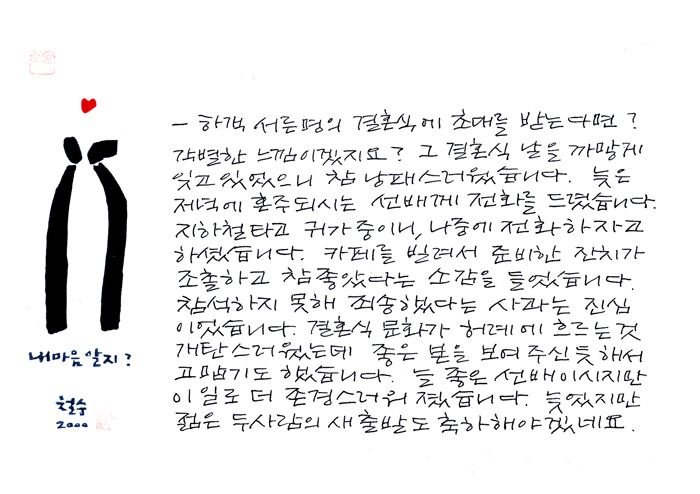 - 하객 서른명의 결혼식에 초대를 받는다면?
각별한 느낌이겠지요? 그 결혼식 날을 까맣게
잊고 있었으니 참 낭패스러웠습니다. 늦은
저녁에 혼주되시는 선배께 전화를 드렸습니다.
지하철타고 귀가중이니, 나중에 전화하자고
하셨습니다. 카페를 빌려서 준비한 잔치가
조촐하고 참 좋았다는 소감을 들었습니다.
참석하지 못해 죄송했다는 사과는 진심
이었습니다. 결혼식 문화가 허례에 흐르는것
개탄스러웠는데 좋은 본을 보여주신 듯해서
고맙기도 했습니다. 늘 좋은 선배이시지만
이 일로 더 존경스러워 졌습니다. 늦었지만
젊은 두사람의 새출발도 축하해야겠네요.
내마음 알지?
철수
2000